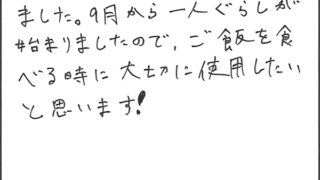 ました。9月から一人ぐらしが
始まりましたので、ご飯を食
べる時に大切に使用したい
と思います!